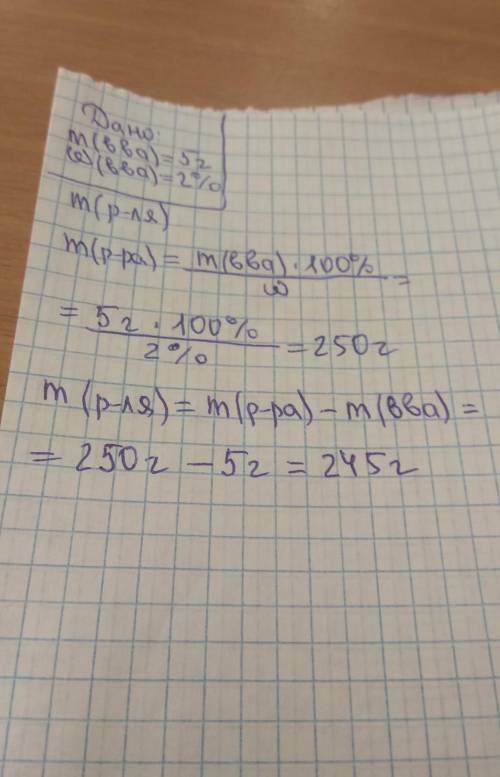 Дано:
m(вва)=5г
ω(вва)=2%
m(р-ля)
m(р-ра) = m(вва) · 100% / ω =
= 5г · 100% / 2% = 250г
m(р-ля) = m(р-ра) – m(вва) =
= 250г – 5г = 245г